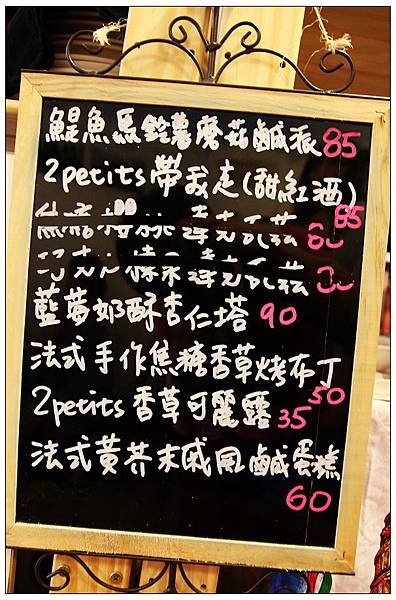 鯷魚馬鈴薯磨菇鹹派 85
2petits帶我走(甜紅酒)
85
藍莓奶酥杏仁塔 90
法式手作焦糖香草烤布丁
50
2petits香草可麗露 35
法式黃芥末戚風鹹蛋糕
60